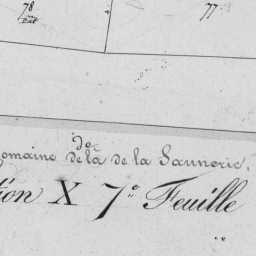 78
77
do
omaine de la de la Saunerie.
tion X 7e Feuille